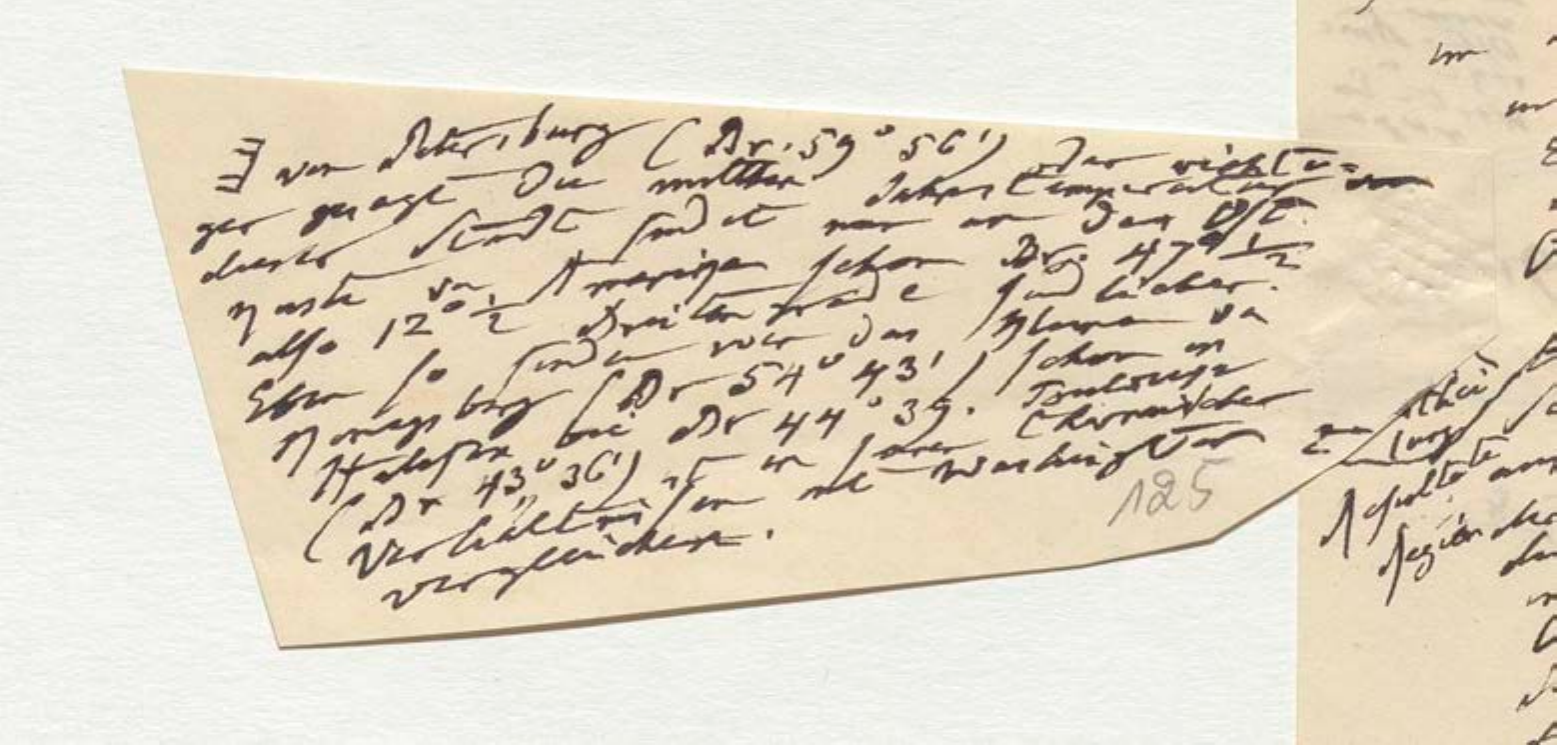 von Petersburg (Br. 59° 56') oder richti=
ger gesagt Die mittlere Jahrestemperatur
dieser Stadt findet man an der Ost
küste von Amerika schon Br. 47° ½
also 12° ½ Breitengrade südlicher.
Eben so finden wir das Klima von
Königsberg (Br 54° 43') schon in
Halifax bei Br 44° 39. Toulouse
(Br 43° 36') ist in seinen thermischen
Verhältnissen mit Washington
vergleichen.
125
im